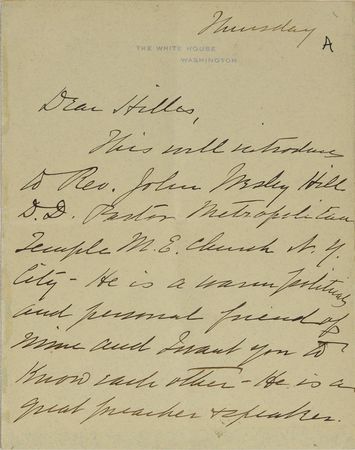 Thursday
A
THE WHITE HOUSE
WASHINGTON
Dear Hilles,
This will introduce
to Rev. John Wesley Hill
D.D. Pastor Metropolitan
Temple M.E. Church N.Y.
City - He is a warm political
and personal friend of
mine and I want you to
know each other - He is a
great preacher & speaker.